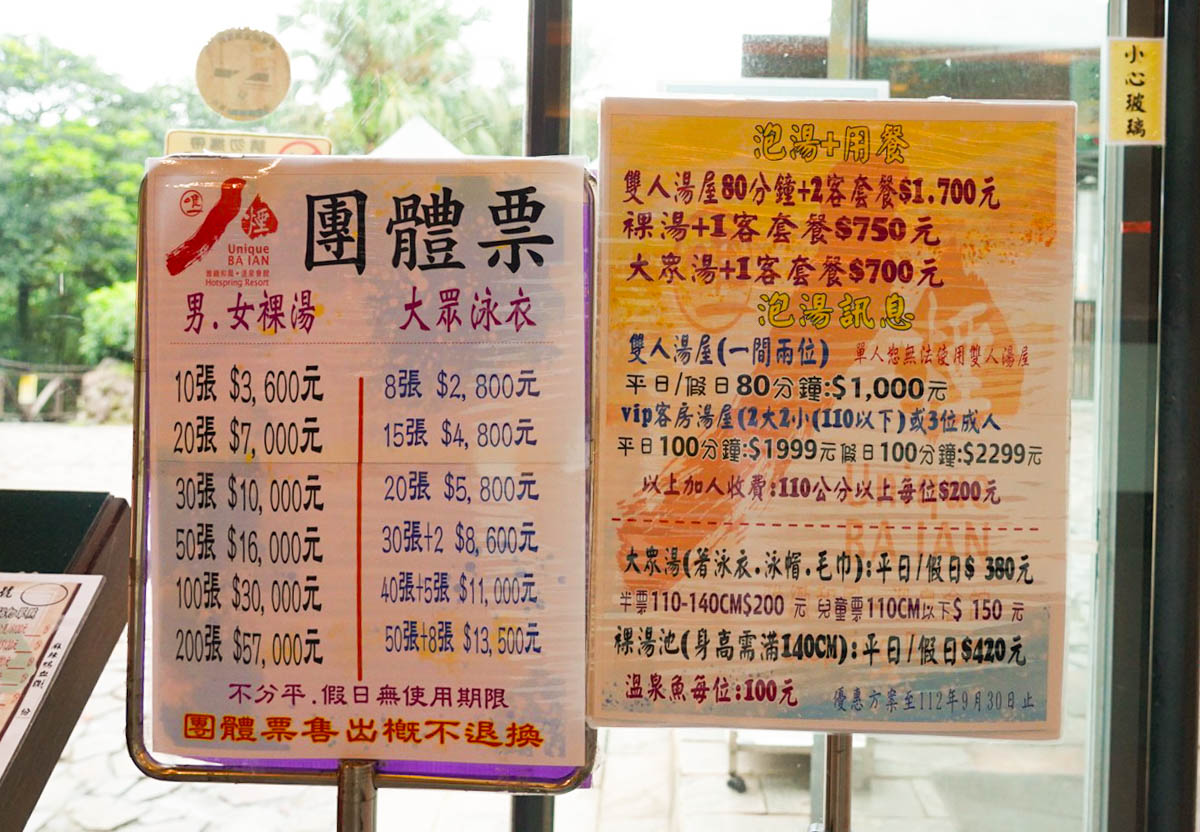 小心玻璃
請勿攜帶
唯一
八煙
Unique
BA IAN
雅緻和風・溫泉會館
Hotspring Resort
團體票
男.女裸湯
10張 $3,600元
20張 $7,000元
30張 $10,000元
50張 $16,000元
100張 $30,000元
200張 $57,000元
大眾泳衣
8張 $2,800元
15張 $4,800元
20張 $5,800元
30張+2 $8,600元
40張+5張 $11,000元
50張+8張 $13,500元
不分平.假日無使用期限
團體票售出概不退換
泡湯+用餐
雙人湯屋80分鐘+2客套餐$1.700元
裸湯+1客套餐$750元
大眾湯+1客套餐$700元
泡湯訊息
雙人湯屋(一間兩位) 單人恕無法使用雙人湯屋
平日/假日80分鐘:$1,000元
vip客房湯屋(2大2小(110以下)或3位成人
平日100分鐘:$1999元 假日100分鐘:$2299元
以上加人收費:110公分以上每位$200元
Unique
BA IAN
大眾湯(著泳衣.泳帽.毛巾):平日/假日$ 380元
半票110-140CM$200 元 兒童票110CM以下$ 150 元
裸湯池(身高需滿140CM):平日/假日$420元
溫泉魚每位:100元
優惠方案至112年9月30日止